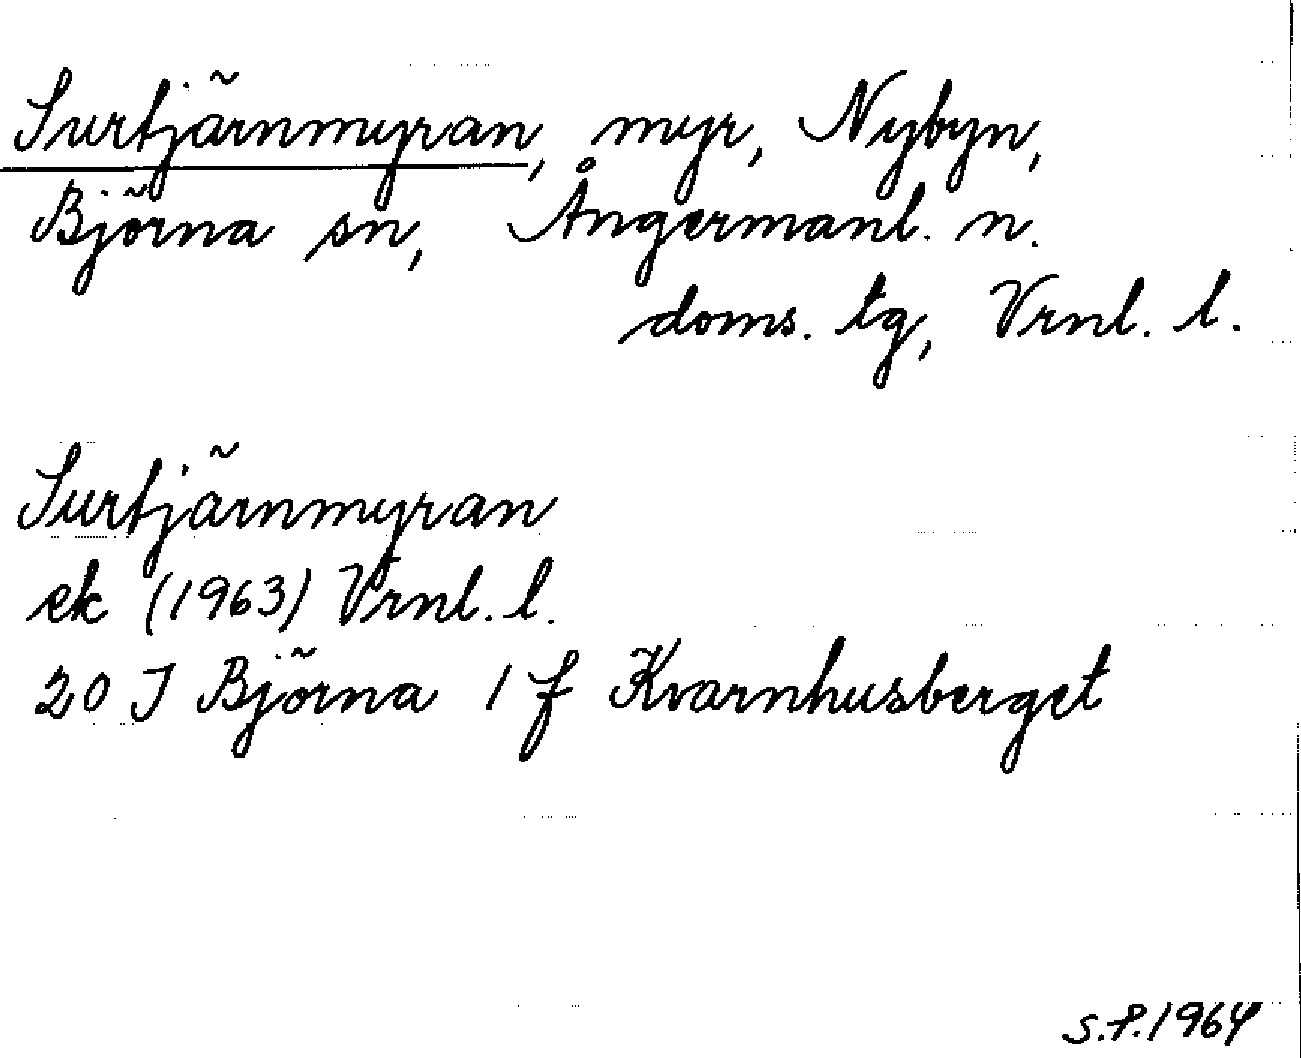 Surtjärnmyran, myr, Nybyn,
Björna sn, Ångermanl. n.
doms. tg, Vrnl. l.
Surtjärnmyran
ek (1963) Vrnl. l.
20 J Björna 1 f Kvarnhusberget
S.P. 1964